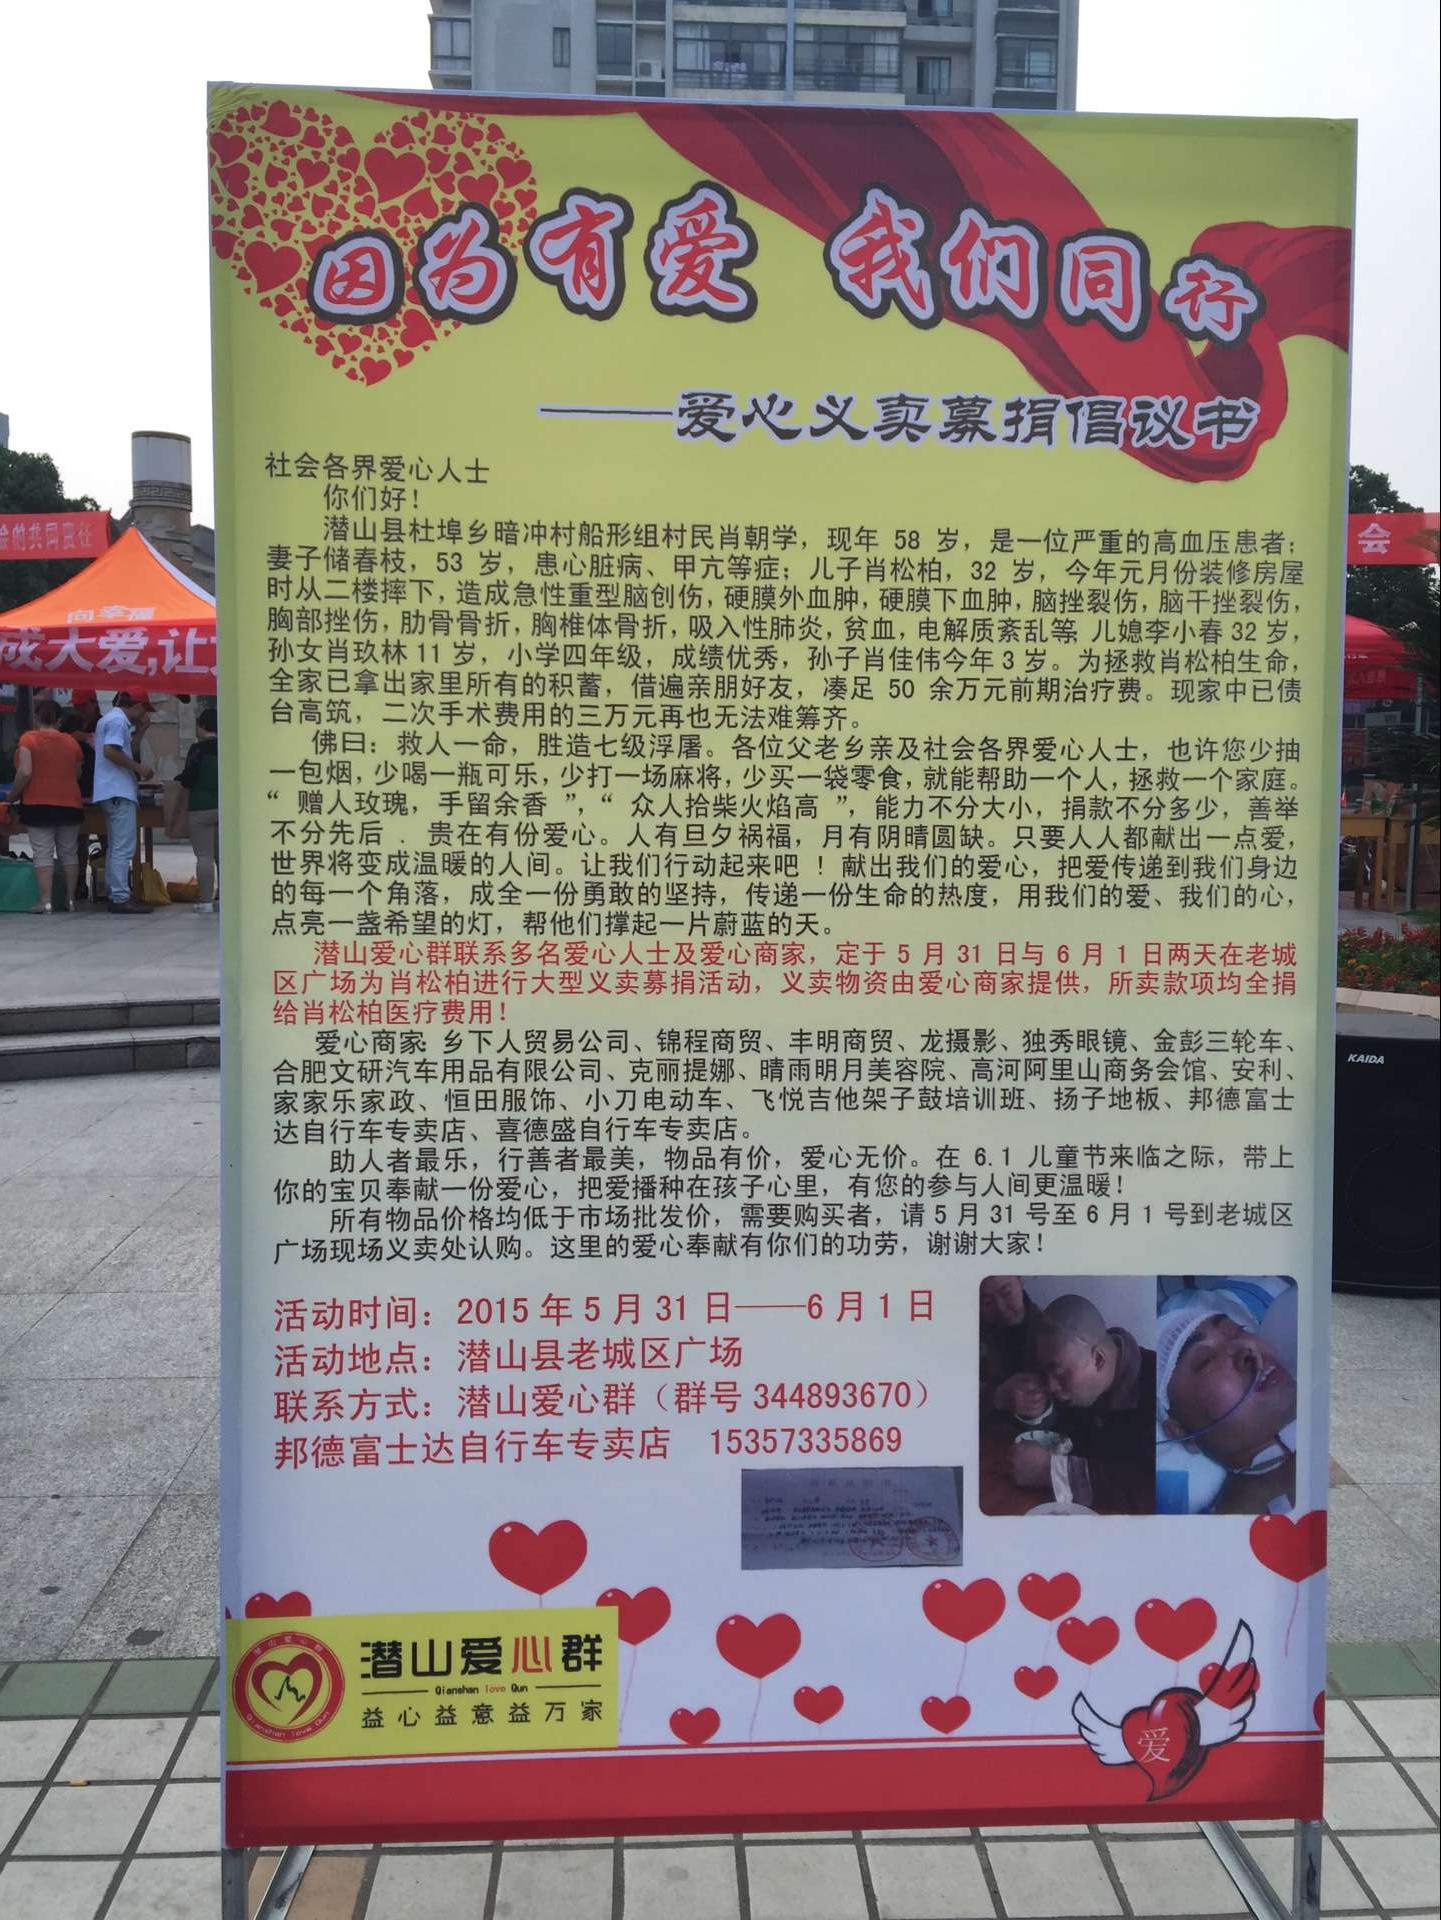 因为有爱 我们同行
——爱心义卖募捐倡议书
社会各界爱心人士
你们好！
潜山县杜埠乡暗冲村船形组村民肖朝学，现年 58 岁，是一位严重的高血压患者；
妻子储春枝，53 岁，患心脏病、甲亢等症；儿子肖松柏，32 岁，今年元月份装修房屋
时从二楼摔下，造成急性重型脑创伤，硬膜外血肿，硬膜下血肿，脑挫裂伤，脑干挫裂伤，
胸部挫伤，肋骨骨折，胸椎体骨折，吸入性肺炎，贫血，电解质紊乱等；儿媳李小春32岁，
孙女肖玖林11岁，小学四年级，成绩优秀，孙子肖佳伟今年3岁。为拯救肖松柏生命，
全家已拿出家里所有的积蓄，借遍亲朋好友，凑足 50 余万元前期治疗费。现家中已债
台高筑，二次手术费用的三万元再也无法难筹齐。
佛曰：救人一命，胜造七级浮屠。各位父老乡亲及社会各界爱心人士，也许您少抽
一包烟，少喝一瓶可乐，少打一场麻将，少买一袋零食，就能帮助一个人，拯救一个家庭。
“ 赠人玫瑰，手留余香 ”，“ 众人拾柴火焰高 ”，能力不分大小，捐款不分多少，善举
不分先后 ． 贵在有份爱心。人有旦夕祸福，月有阴晴圆缺。只要人人都献出一点爱，
世界将变成温暖的人间。让我们行动起来吧 ！献出我们的爱心，把爱传递到我们身边
的每一个角落，成全一份勇敢的坚持，传递一份生命的热度，用我们的爱、我们的心，
点亮一盏希望的灯，帮他们撑起一片蔚蓝的天。
潜山爱心群联系多名爱心人士及爱心商家，定于 5 月 31 日与 6 月 1 日两天在老城
区广场为肖松柏进行大型义卖募捐活动，义卖物资由爱心商家提供，所卖款项均全捐
给肖松柏医疗费用！
爱心商家：乡下人贸易公司、锦程商贸、丰明商贸、龙摄影、独秀眼镜、金彭三轮车、
合肥文研汽车用品有限公司、克丽提娜、晴雨明月美容院、高河阿里山商务会馆、安利、
家家乐家政、恒田服饰、小刀电动车、飞悦吉他架子鼓培训班、扬子地板、邦德富士
达自行车专卖店、喜德盛自行车专卖店。
助人者最乐，行善者最美，物品有价，爱心无价。在 6.1 儿童节来临之际，带上
你的宝贝奉献一份爱心，把爱播种在孩子心里，有您的参与人间更温暖！
所有物品价格均低于市场批发价，需要购买者，请 5 月 31 号至 6 月 1 号到老城区
广场现场义卖处认购。这里的爱心奉献有你们的功劳，谢谢大家！
活动时间：2015 年 5 月 31 日——6 月 1 日
活动地点：潜山县老城区广场
联系方式：潜山爱心群（群号 344893670）
邦德富士达自行车专卖店 15357335869
潜山爱心群
Qianshan love Qun
益心益意益万家
潜山爱心群
Qianshan love Qun
爱
会的共同责任
向幸福
成大爱,让
会
KAIDA